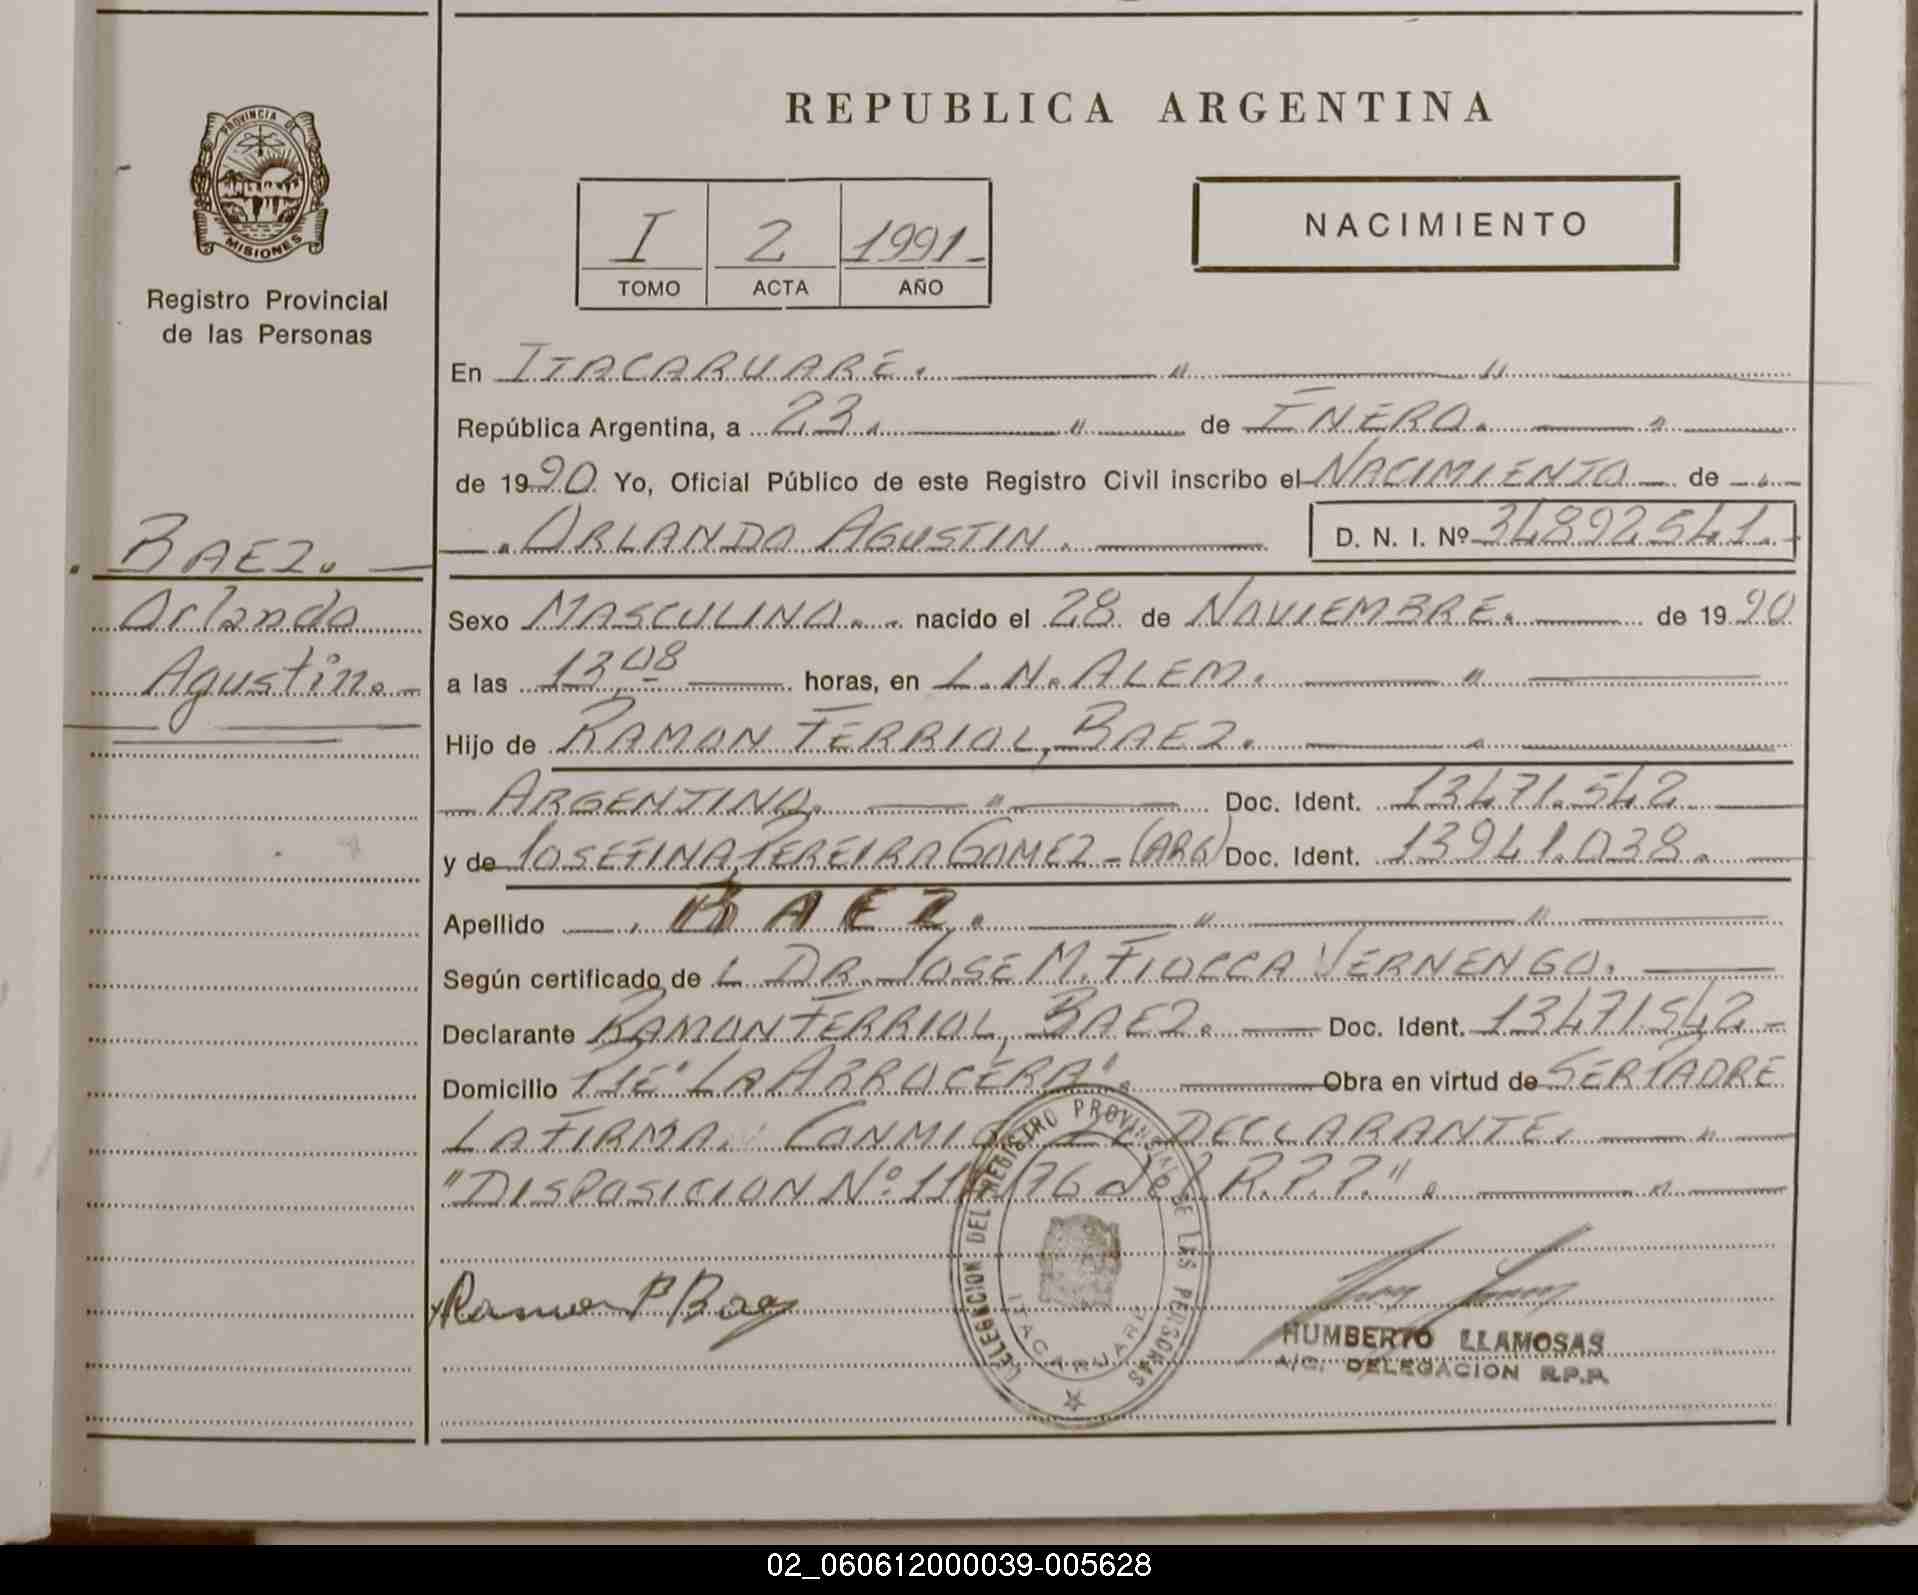 REPUBLICA ARGENTINA
PROVINCIA DE
MISIONES
Registro Provincial
de las Personas
I 2 1991.-
TOMO ACTA AÑO
NACIMIENTO
En ITACARUARE. " "
República Argentina, a 23. " de ENERO. "
de 1990 Yo, Oficial Público de este Registro Civil inscribo el NACIMIENTO de
ORLANDO AGUSTIN. D. N. I. Nº 34892541.-
BAEZ.
Orlando
Agustin.-
Sexo MASCULINO. nacido el 28 de NOVIEMBRE. de 1990
a las 13,08 horas, en L.N.ALEM. "
Hijo de RAMON FERRIOL, BAEZ. "
ARGENTINO. " Doc. Ident. 13471.542
y de JOSEFINA, PEREIRA GOMEZ-(ARG) Doc. Ident. 13941.038.
Apellido BAEZ. " "
Según certificado de L DR. JOSE M. FIOCCA VERNENGO.
Declarante RAMON FERRIOL, BAEZ. Doc. Ident. 13471542-
Domicilio PJE "LA ARROCERA". Obra en virtud de SER PADRE
LA FIRMA. CONMIGO EL DECLARANTE. "
"DISPOSICION Nº 11 /76 del R.P.P.". "
DELEGACION DEL REGISTRO PROVINCIAL DE LAS PERSONAS
ITACARUARE
Ramon F Baez
HUMBERTO LLAMOSAS
A/C. DELEGACION R.P.P.
02_060612000039-005628